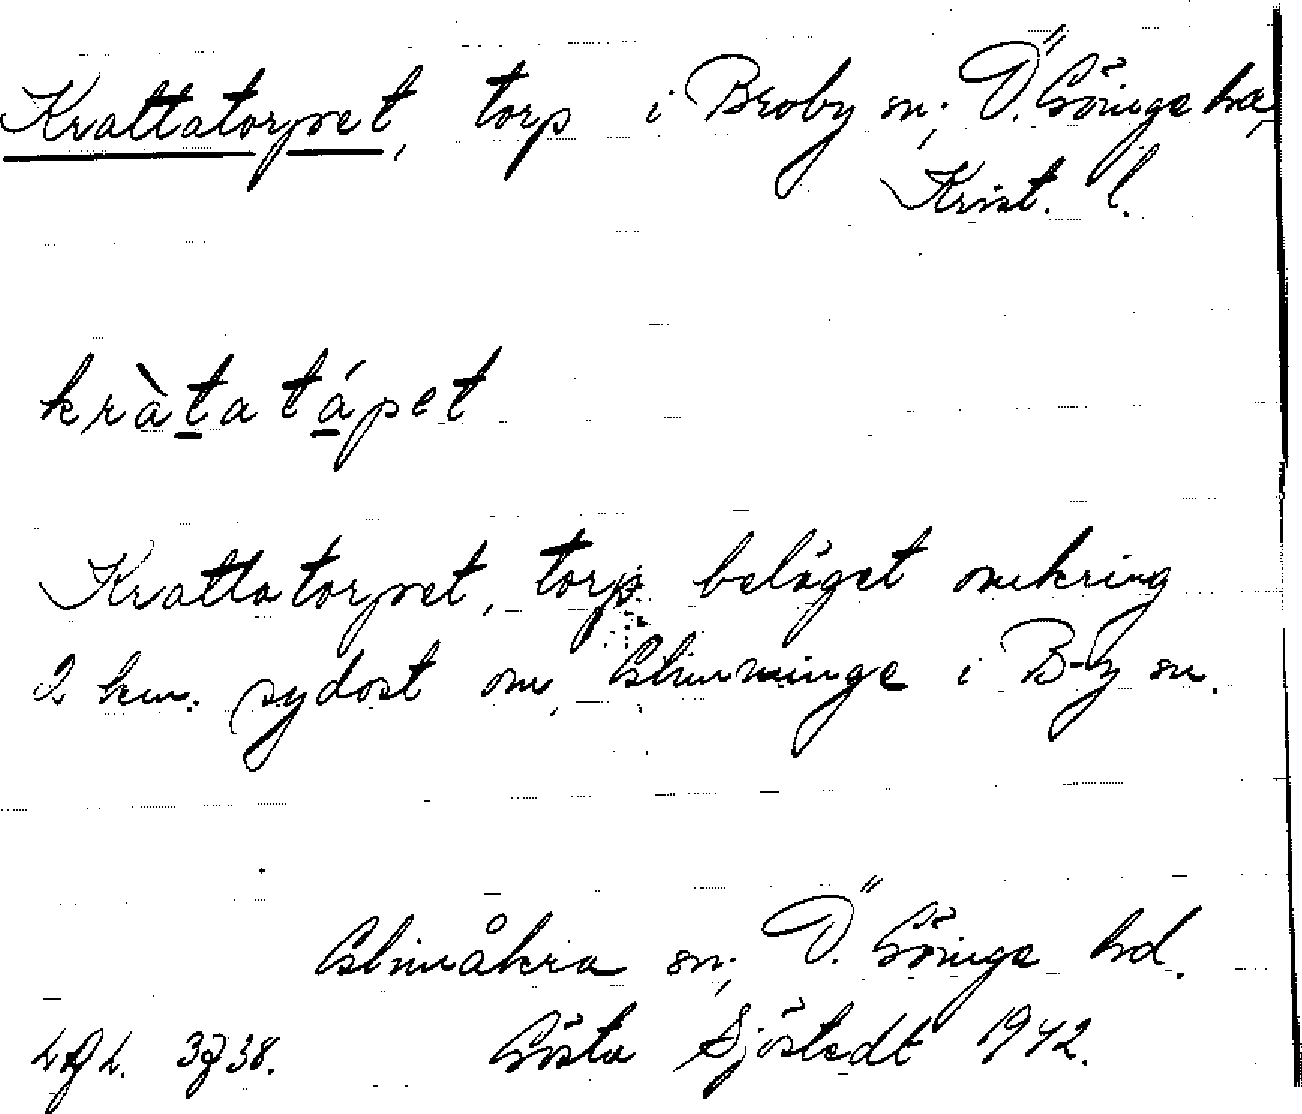 Krattatorpet, torp i Broby sn, Ö. Göinge hd,
Krist. l.
kràtatápet
Krattatorpet, torp beläget omkring
2 km. sydost om Glimminge i B-y sn.
Glimåkra sn, Ö. Göinge hd.
Gösta Sjöstedt 1942.